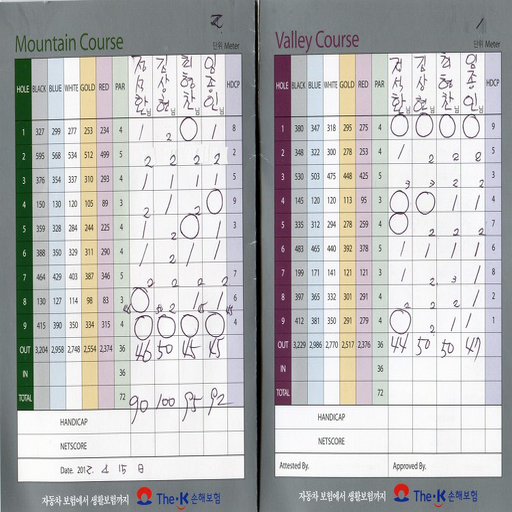 Mountain Course
단위 Meter
HOLE BLACK BLUE WHITE GOLD RED PAR HDCP
1 327 299 277 253 234 4 1 2 0 1 8
2 595 568 534 512 499 5 2 2 2 2 2
3 376 354 337 310 293 4 1 1 1 1 5
4 150 130 120 105 89 3 2 1 2 0 9
5 359 328 284 244 225 4 1 2 0 1 3
6 388 350 329 311 290 4 1 2 1 1
7 464 429 403 387 346 5 2 2 2 2 7
8 130 114 98 83 3 0 2 2 1 6
9 415 390 350 334 315 4 0 0 0 0 4
OUT 3,204 2,958 2,748 2,554 2,374 36 46 50 45 45
IN 36
TOTAL 72 90 100 95 92
HANDICAP
NETSCORE
Date. 2012. 4 15 日
자동차 보험에서 생활보험까지 The·K 손해보험
Valley Course
단위 Meter
HOLE BLACK BLUE WHITE GOLD RED PAR HDCP
1 380 347 318 295 275 4 0 0 0 0 9
2 348 322 300 278 253 4 1 2 2 2
3 530 503 475 448 425 5 3 3 2 2
4 145 120 120 113 95 3 0 0 1 1
5 335 312 294 278 259 4 0 2 2 2
6 483 465 440 392 378 5 1 1 1 1
7 199 171 141 121 121 3 1 2 3 1
8 397 365 332 291 4 2 2 2 1
9 412 381 350 291 279 4 0 2 1 1 1
OUT 3,229 2,986 2,770 2,517 2,376 36 44 50 50 47
IN 36
TOTAL 72
HANDICAP
NETSCORE
Attested By. Approved By.
자동차 보험에서 생활보험까지 The·K 손해보험